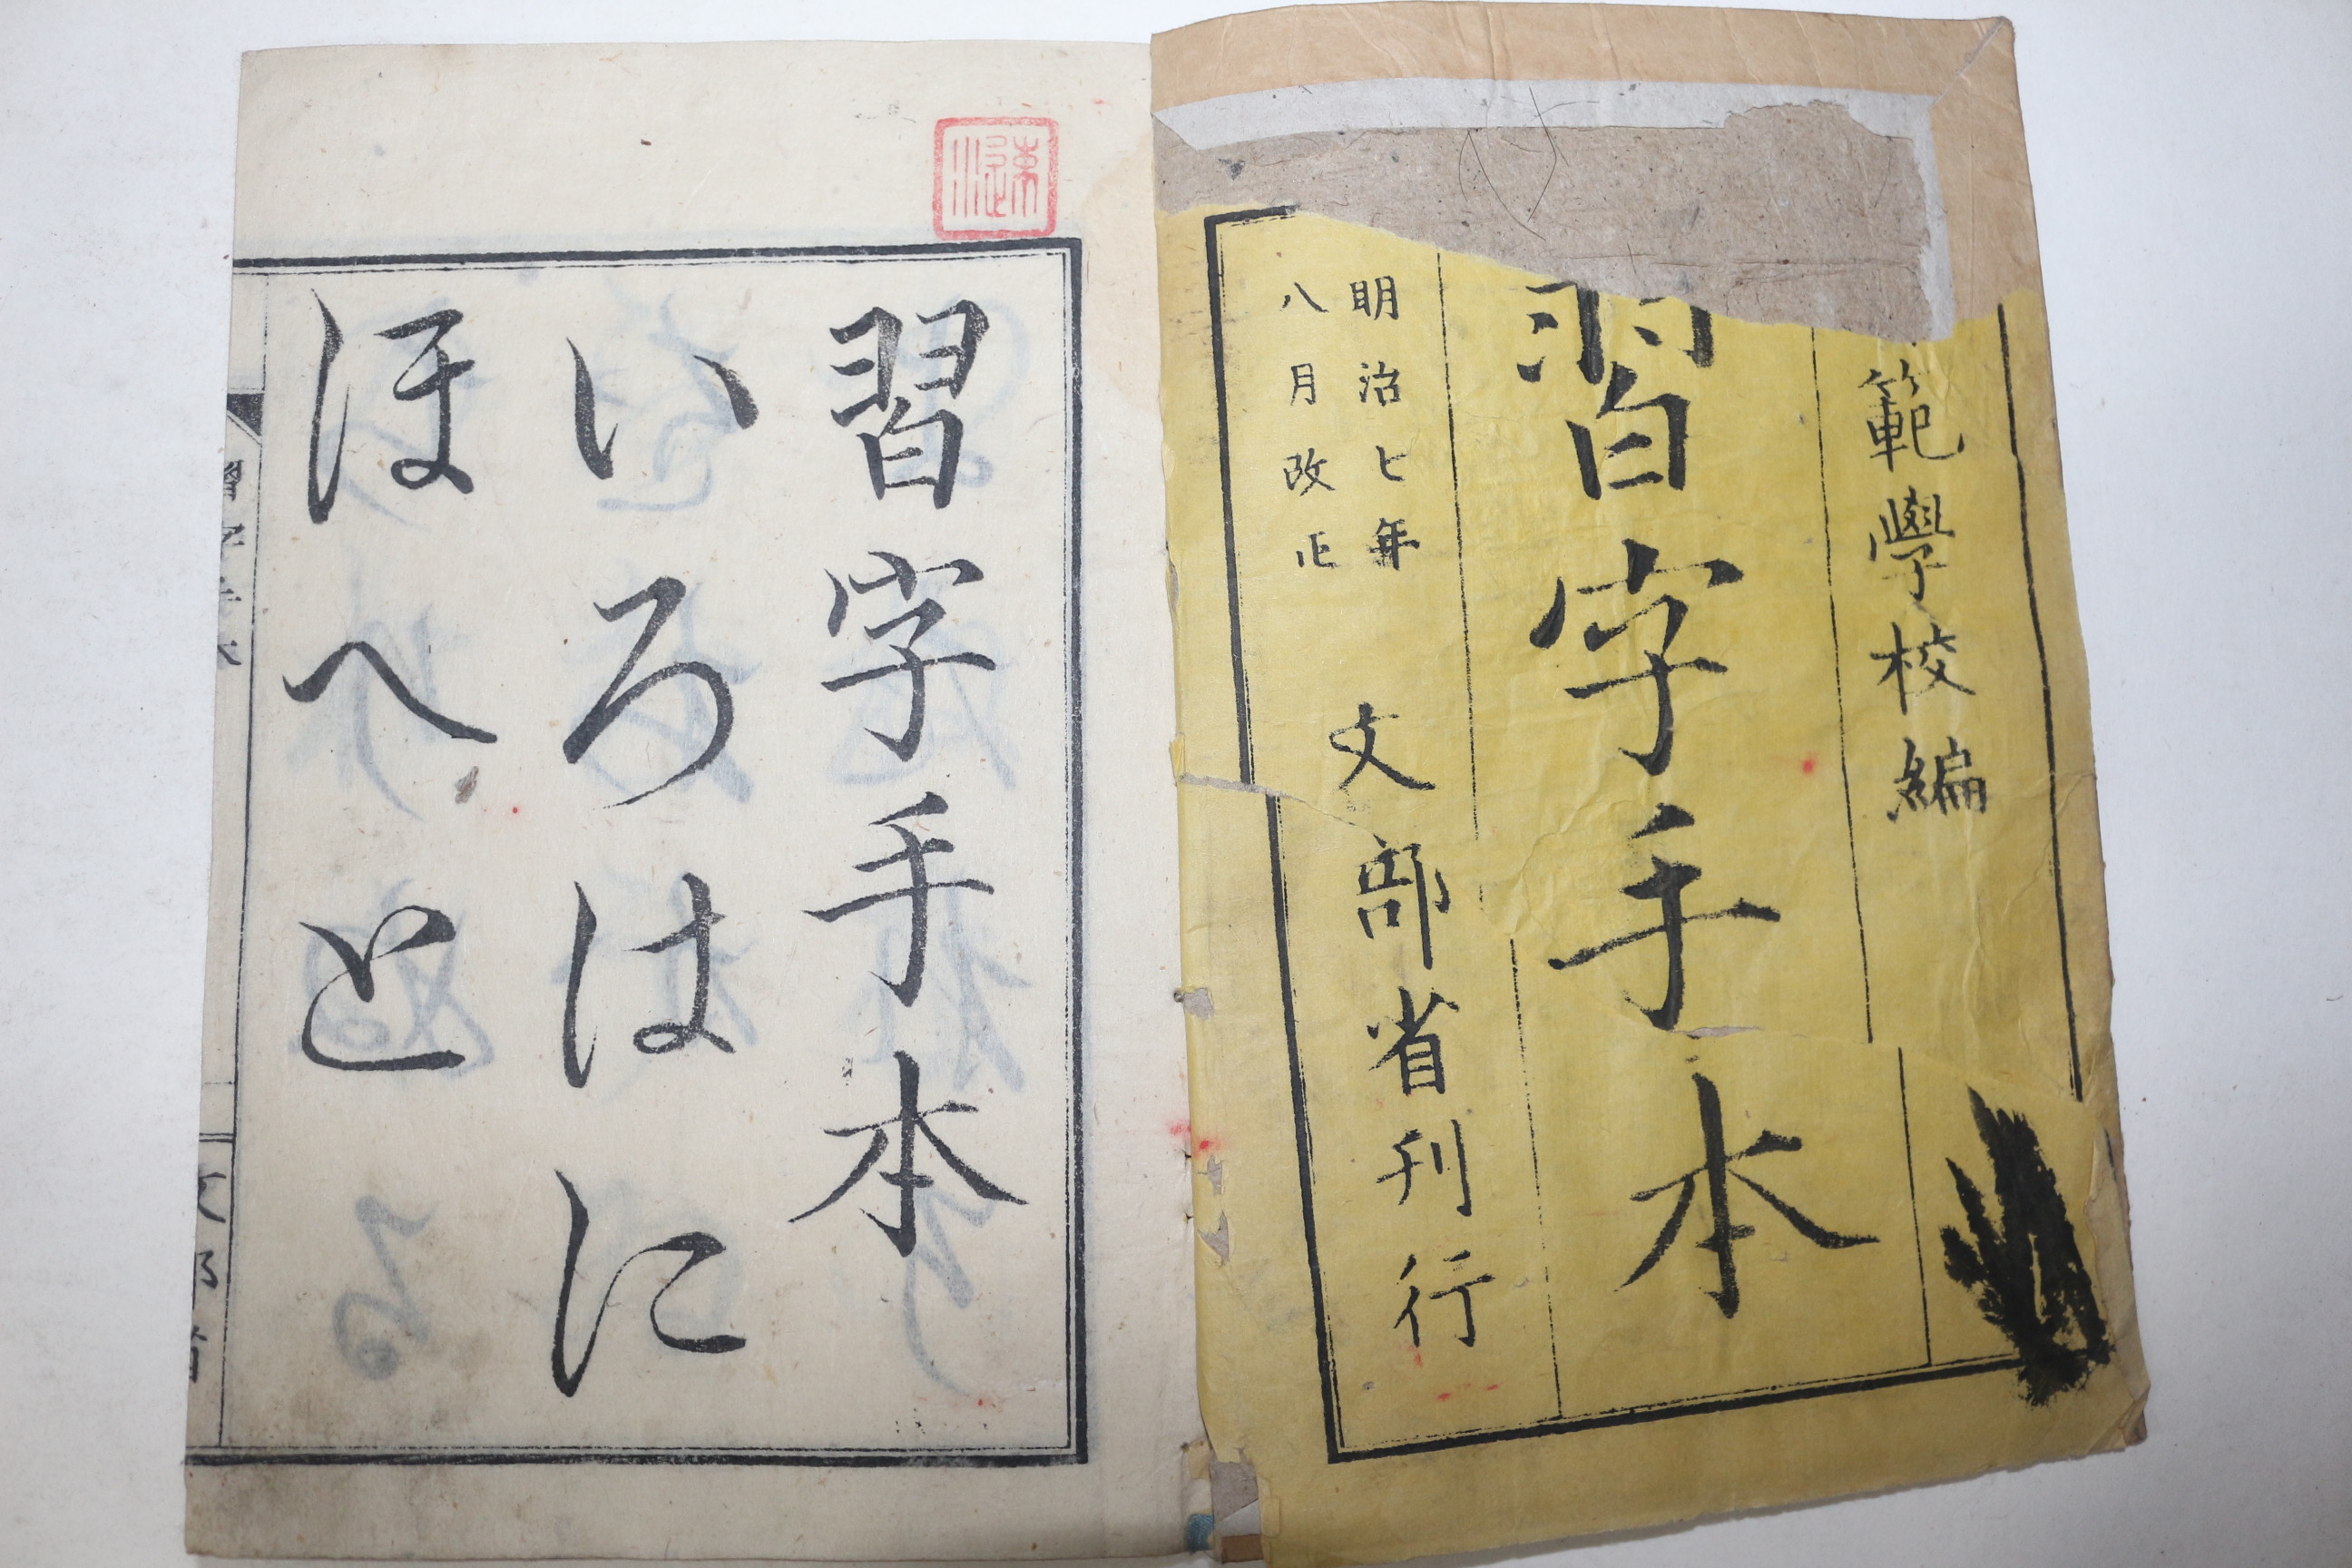 範學校編
習字手本
明治七年
八月改正
文部省刊行
習字手本
いろはに
ほへと